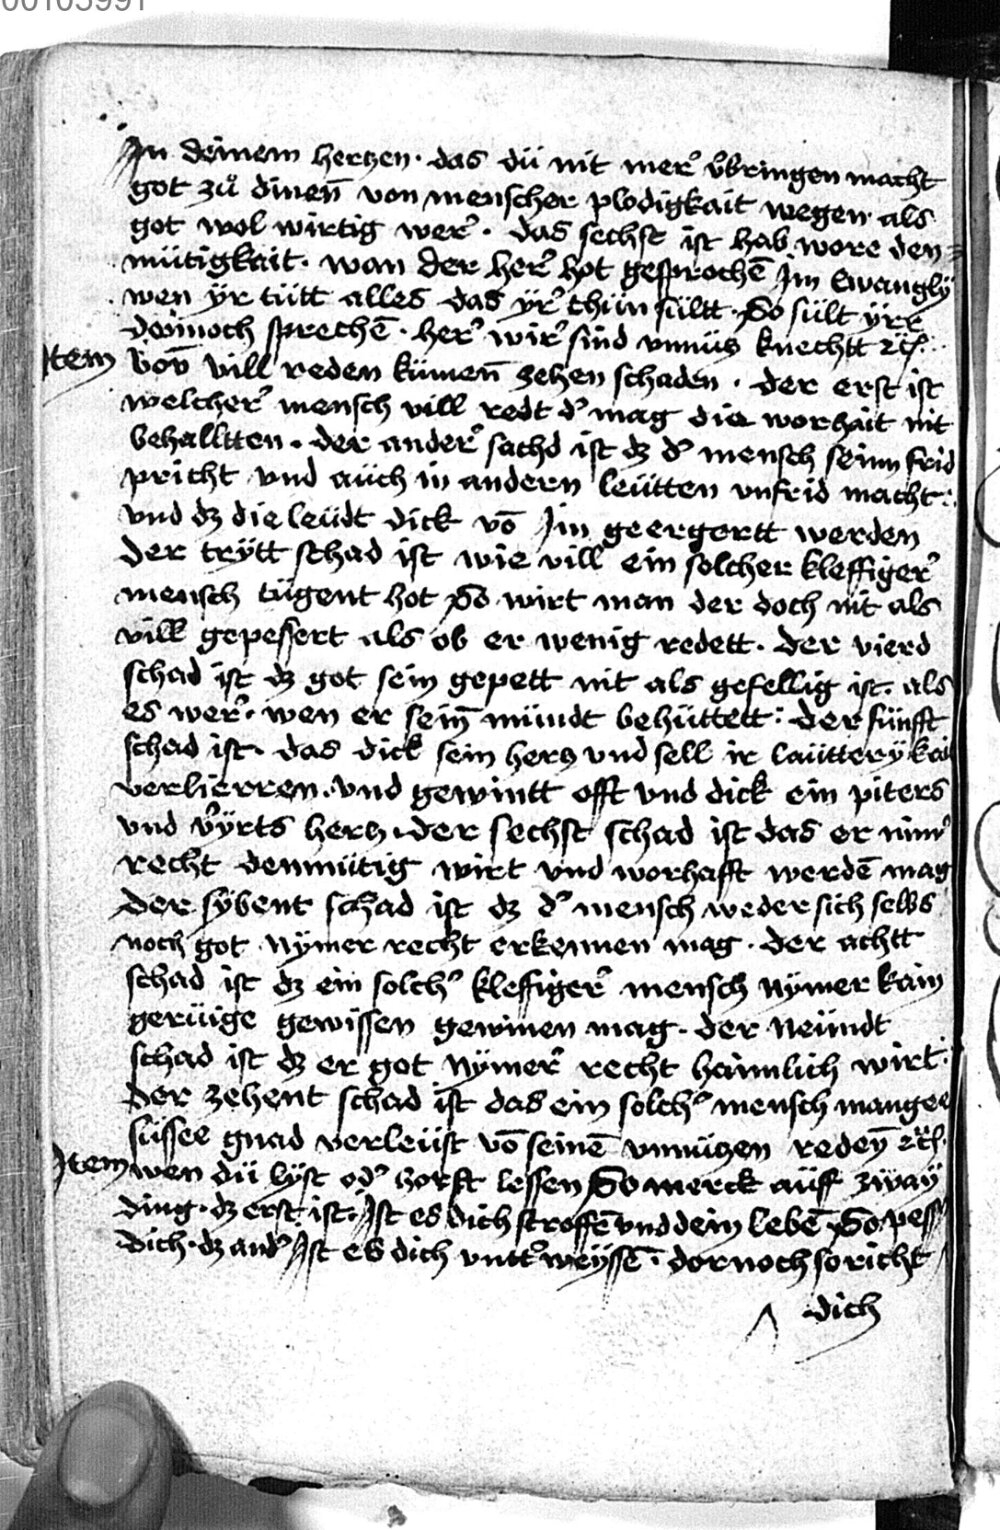 00103991
In deinem hertzen · das dü nit mer̾ v̾bringen macht
got zů dinen̄ von menscher plodigkait wegen als
got wol wirtig wer̾ · das sechst ist hab wore den=
mütigkait · wan der her̾ hot gesprochē Im Ewangly
wen ÿr tütt alles das ÿr̾ thün sültt · So sült ÿre
dennoch sprechē · her̾ wir̾ sind vnnütz knechtt ꝛc̄
Item Von̄ vill reden kümen̄ zehen schaden · der erst ist
welcher̾ mensch vill redt d̾ mag die worhait nit
behalltten · der ander̾ schad ist dz d̾ mensch seinn frid
pricht vnd aüch in andern leütten vnfrid macht :
vnd dz die leüdt dick vō Im geergertt werden
der trÿtt schad ist wie vill ein solcher kleffiger̾
mensch tügent hot So wirt man der doch nit als
vill gepessert als ob er wenig redett · der vierd
schad ist dz got sein gepett nit als gefellig ist · als
es wer̾ · wen er sein̄ mündt behüttett : der fünfft
schad ist · das dick sein hertz vnd sell ir laütterÿkai
verlierren · vnd gewintt offt vnd dick ein piters
vnd v̾ÿrts hertz · der sechst schad ist das er nim̾
recht demmütig wirt vnd worhafft werdē mag
der sÿbent schad ist dz d̾ mensch weder sich selbs
noch got nÿmer recht erkennen mag · der achtt
schad ist dz ein solch̾ kleffiger̾ mensch nÿmer kain
gerüige gewissen gewinen mag · der neündt
schad ist dz er got nÿmer̾ recht haimlich wirt :
der zehent schad ist das ein solch̾ mensch mangee
süssee gnad verleüst vō seinē vnnützen reden̄ ꝛc̄
Item wen dü lÿst od̾ horst lessen So merck aüff zwaÿ
ding · dz erst ist · Ist es dich stroffē vnd dein lebē · So pess
dich · dz and̾ Ist es dich vntt̾weÿssē · dornoch so richt
dich